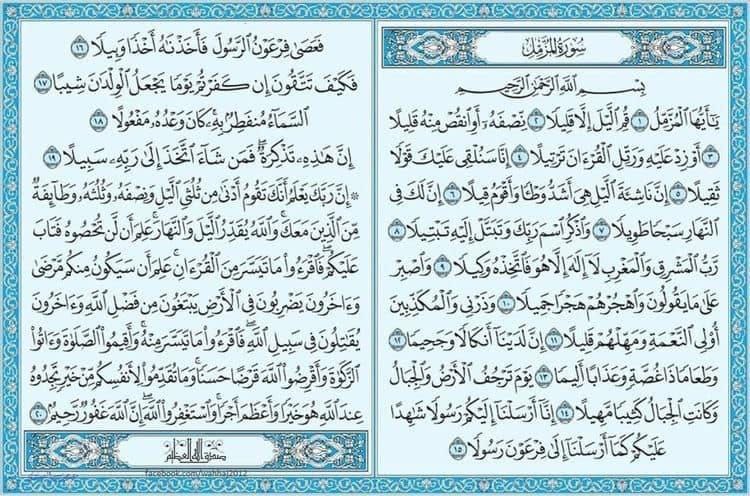 سُورَةُ الْمُزَّمِّلِ
بِسْمِ اللَّهِ الرَّحْمَٰنِ الرَّحِيمِ
يَٰٓأَيُّهَا الْمُزَّمِّلُ ١ قُمِ الَّيْلَ إِلَّا قَلِيلًا ٢ نِّصْفَهُۥٓ أَوِ انقُصْ مِنْهُ قَلِيلًا
٣ أَوْ زِدْ عَلَيْهِ وَرَتِّلِ الْقُرْءَانَ تَرْتِيلًا ٤ إِنَّا سَنُلْقِى عَلَيْكَ قَوْلًا
ثَقِيلًا ٥ إِنَّ نَاشِئَةَ الَّيْلِ هِىَ أَشَدُّ وَطْـًٔا وَأَقْوَمُ قِيلًا ٦ إِنَّ لَكَ فِى
النَّهَارِ سَبْحًا طَوِيلًا ٧ وَاذْكُرِ اسْمَ رَبِّكَ وَتَبَتَّلْ إِلَيْهِ تَبْتِيلًا ٨
رَّبُّ الْمَشْرِقِ وَالْمَغْرِبِ لَآ إِلَٰهَ إِلَّا هُوَ فَاتَّخِذْهُ وَكِيلًا ٩ وَاصْبِرْ
عَلَىٰ مَا يَقُولُونَ وَاهْجُرْهُمْ هَجْرًا جَمِيلًا ١٠ وَذَرْنِى وَالْمُكَذِّبِينَ
أُو۟لِى النَّعْمَةِ وَمَهِّلْهُمْ قَلِيلًا ١١ إِنَّ لَدَيْنَآ أَنكَالًا وَجَحِيمًا ١٢
وَطَعَامًا ذَا غُصَّةٍ وَعَذَابًا أَلِيمًا ١٣ يَوْمَ تَرْجُفُ الْأَرْضُ وَالْجِبَالُ
وَكَانَتِ الْجِبَالُ كَثِيبًا مَّهِيلًا ١٤ إِنَّآ أَرْسَلْنَآ إِلَيْكُمْ رَسُولًا شَٰهِدًا
عَلَيْكُمْ كَمَآ أَرْسَلْنَآ إِلَىٰ فِرْعَوْنَ رَسُولًا ١٥
فَعَصَىٰ فِرْعَوْنُ الرَّسُولَ فَأَخَذْنَٰهُ أَخْذًا وَبِيلًا ١٦
فَكَيْفَ تَتَّقُونَ إِن كَفَرْتُمْ يَوْمًا يَجْعَلُ الْوِلْدَٰنَ شِيبًا ١٧
السَّمَآءُ مُنفَطِرٌۢ بِهِۦ ۚ كَانَ وَعْدُهُۥ مَفْعُولًا ١٨
إِنَّ هَٰذِهِۦ تَذْكِرَةٌ ۖ فَمَن شَآءَ اتَّخَذَ إِلَىٰ رَبِّهِۦ سَبِيلًا ١٩
۞ إِنَّ رَبَّكَ يَعْلَمُ أَنَّكَ تَقُومُ أَدْنَىٰ مِن ثُلُثَىِ الَّيْلِ وَنِصْفَهُۥ وَثُلُثَهُۥ وَطَآئِفَةٌ
مِّنَ الَّذِينَ مَعَكَ ۚ وَاللَّهُ يُقَدِّرُ الَّيْلَ وَالنَّهَارَ ۚ عَلِمَ أَن لَّن تُحْصُوهُ فَتَابَ
عَلَيْكُمْ ۖ فَاقْرَءُوا۟ مَا تَيَسَّرَ مِنَ الْقُرْءَانِ ۚ عَلِمَ أَن سَيَكُونُ مِنكُم مَّرْضَىٰ
وَءَاخَرُونَ يَضْرِبُونَ فِى الْأَرْضِ يَبْتَغُونَ مِن فَضْلِ اللَّهِ ۙ وَءَاخَرُونَ
يُقَٰتِلُونَ فِى سَبِيلِ اللَّهِ ۖ فَاقْرَءُوا۟ مَا تَيَسَّرَ مِنْهُ ۚ وَأَقِيمُوا۟ الصَّلَوٰةَ وَءَاتُوا۟
الزَّكَوٰةَ وَأَقْرِضُوا۟ اللَّهَ قَرْضًا حَسَنًا ۚ وَمَا تُقَدِّمُوا۟ لِأَنفُسِكُم مِّنْ خَيْرٍ تَجِدُوهُ
عِندَ اللَّهِ هُوَ خَيْرًا وَأَعْظَمَ أَجْرًا ۚ وَاسْتَغْفِرُوا۟ اللَّهَ ۖ إِنَّ اللَّهَ غَفُورٌ رَّحِيمٌۢ ٢٠
صدق الله العظيم
facebook.com/wahhaj2012